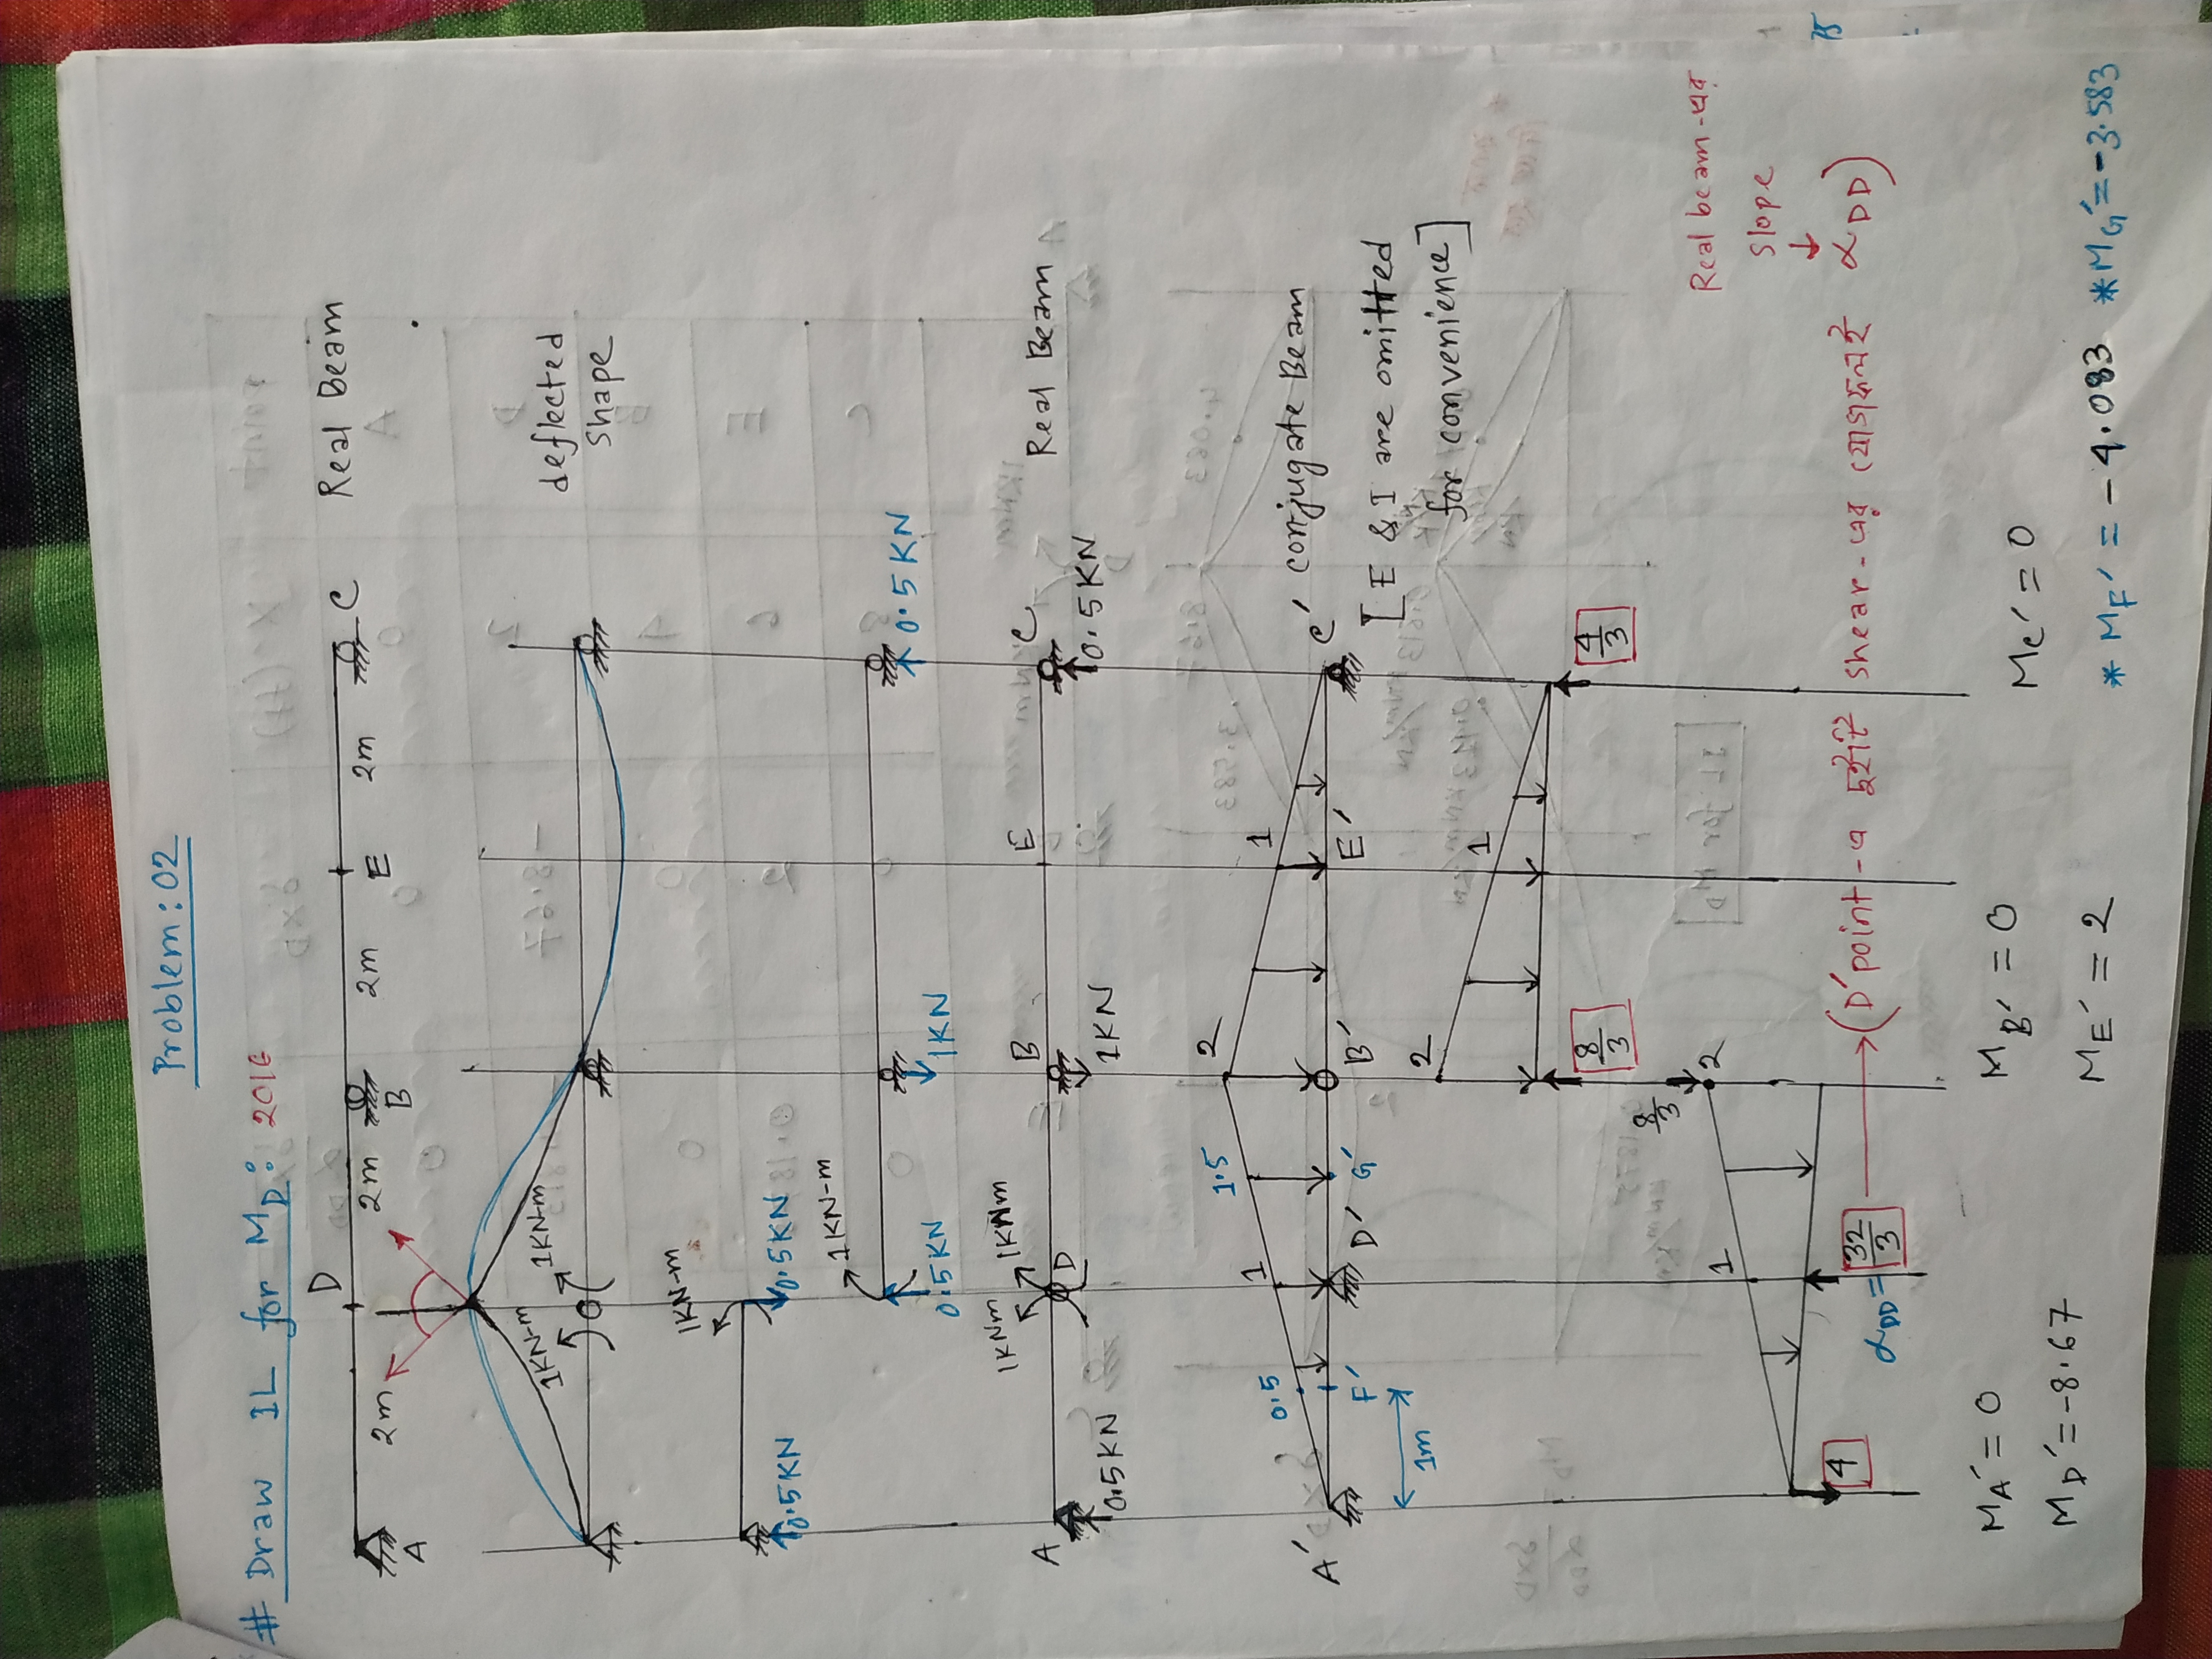 Problem: 02
# Draw IL for M_D: 2016
A 2m D 2m B 2m E 2m C Real Beam
deflected
shape
1KN-m 1KN-m
1KN-m
0.5KN 0.5KN
1KN-m
0.5KN 1KN 0.5KN
A 1KNm 1KNm D B E C Real Beam
0.5KN 1KN 0.5KN
0.5 1 1.5 2 1
A' F' D' G' B' E' C' conjugate Beam
1m
[E & I are omitted
for convenience]
2 1
8/3 4/3
8/3
1 2
4 α_DD = 32/3 → (D' point-এ দুইটি shear-এর যোগফলই α_DD)
Real beam-এর
slope
↓
M_A' = 0 M_B' = 0 M_C' = 0
M_D' = -8.67 M_E' = 2 * M_F' = -4.083 * M_G' = -3.583